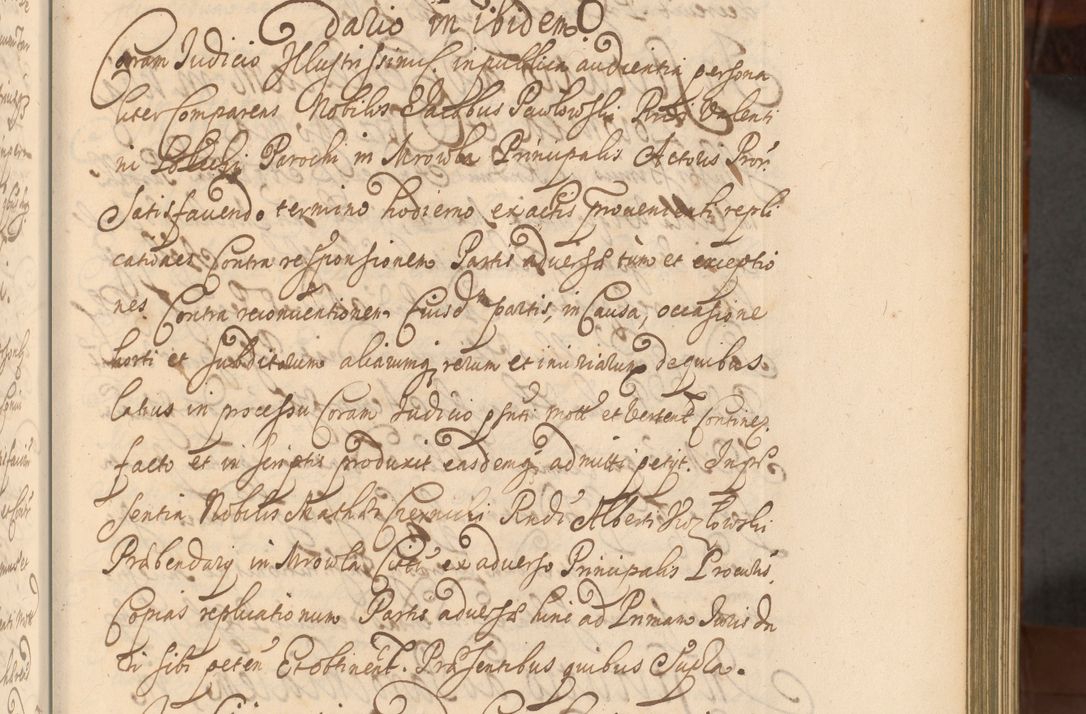 dario in ibidem
Coram Judicio Illustrissimi in publica audientia persona
liter Comparens Nobilis Jacobus Pawlowski Rndi Valenti
ni Parochi in Mrowla Principalis Actoris Pror
Satisfaciendo termino hodierno ex actis provenienti repli
cationes Contra responsionem Partis adversæ tum et exceptio
nes Contra reconventionem Eiusdm partis, in Causa, occasione
horti et subditorum aliarumq rerum et iniuriarum de quibus
latius in processu Coram Judicio psnti mott et vertent Continez
facto et in scriptis produxit easdemq admitti petyt. In præ
sentia Nobilis Mathæi Rndi Alberti Kozlowski
Præbendarij in Mrowla Citti ex adverso Principalis Procuris
Copias replicationum Partis adversæ hinc ad Primam Juris da
ri sibi peten Et obtinent. Præsentibus quibus Supra.